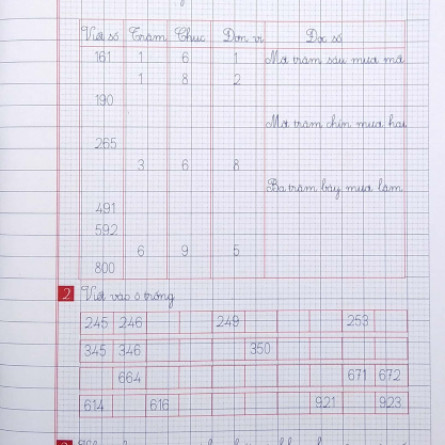 Viết số Trăm Chục Đơn vị Đọc số
161 1 6 1 Một trăm sáu mươi mốt
1 8 2
190
Một trăm chín mươi hai
265
3 6 8
Ba trăm bảy mươi lăm
491
592
6 9 5
800
2 Viết vào ô trống
245 246 249 253
345 346 350
664 671 672
614 616 921 923